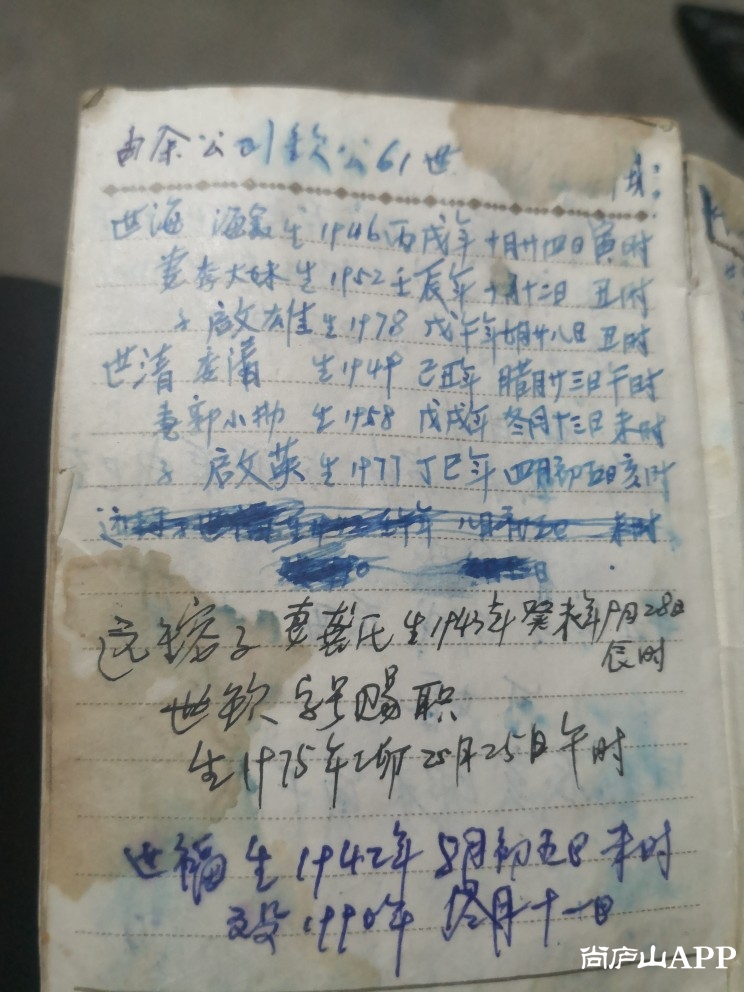 由余公到钦公61世
世海 海泉生1946丙戌年十月廿四日寅时
妻李大妹生1952壬辰年十月十二日 丑时
子 啟雄生1978 戊午年 月廿八日 丑时
世清 生1949 己丑年 腊月廿三日午时
妻郭小 生1958 戊戌年 冬月十三日未时
子 啟英生1977丁巳年 四月初五日亥时
八月初五日 未时
日
子 妻龚氏生1943年癸未年9月28日
辰时
世钦 字号赐职
生1975年乙卯25月25日午时
世福生1942年8月初五日未时
殁1990年 冬月十一日
尚庐山APP